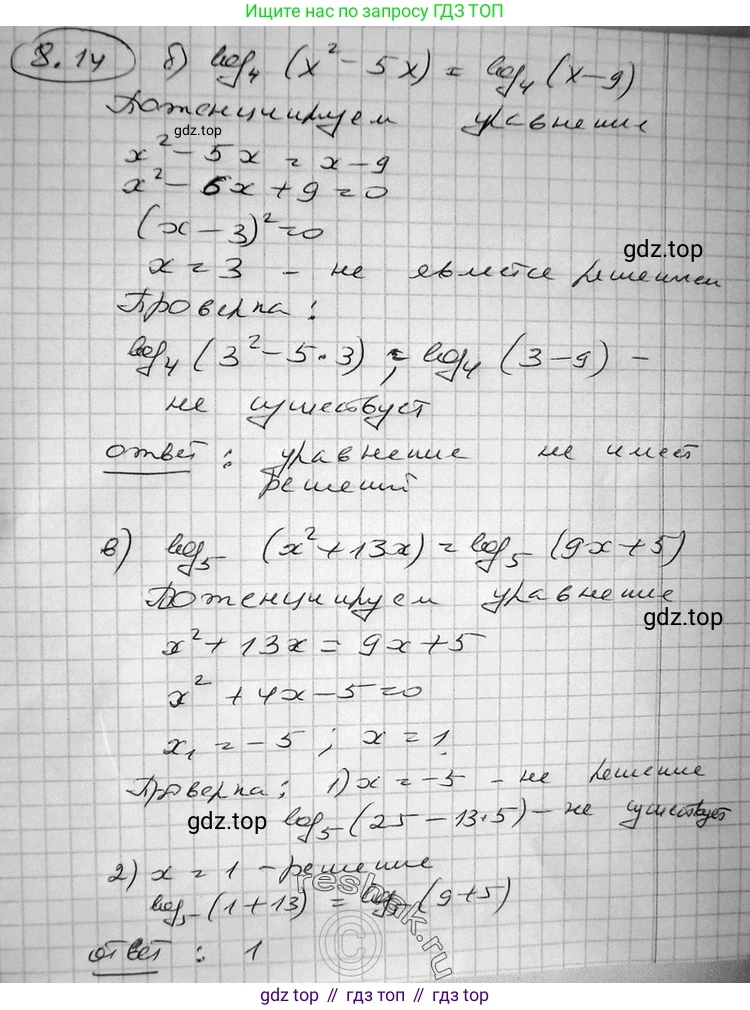 Наши решения есть только по запросу ГДЗ ТОП
8.14 б) log₄ (x² - 5x) = log₄ (x-9)
Потенцируем уравнение
gdz.top
x² - 5x = x - 9
x² - 6x + 9 = 0
(x - 3)² = 0
gdz.top
x = 3 - не является решением
Проверка:
log₄ (3² - 5·3) ; log₄ (3 - 9) -
не существует
ответ : уравнение не имеет
решений
в) log₅ (x² + 13x) = log₅ (9x + 5)
Потенцируем уравнение
gdz.top
x² + 13x = 9x + 5
x² + 4x - 5 = 0
x₁ = -5 ; x = 1
Проверка: 1) x = -5 - не решение
gdz.top log₅ (25 - 13·5) - не существует
2) x = 1 - решение
log₅ (1 + 13) = log₅ (9 + 5)
reshak.ru
©
ответ : 1
gdz top // гдз топ // gdz.top